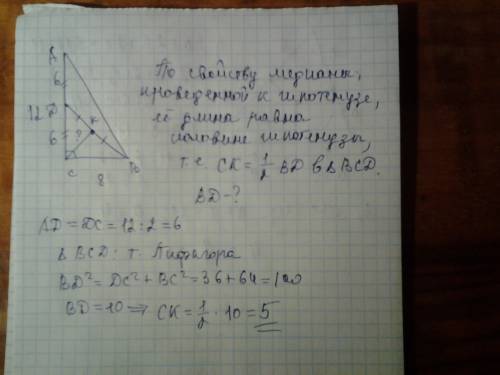 A
6
12
D
K
6
?
C
8
B
По свойству медианы,
проведенной к гипотенузе,
её длина равна
половине гипотенузы,
т.е. CK = 1/2 BD в Δ BCD.
BD - ?
AD = DC = 12 : 2 = 6
Δ BCD: т. Пифагора
BD² = DC² + BC² = 36 + 64 = 100
BD = 10 ⇒ CK = 1/2 · 10 = 5